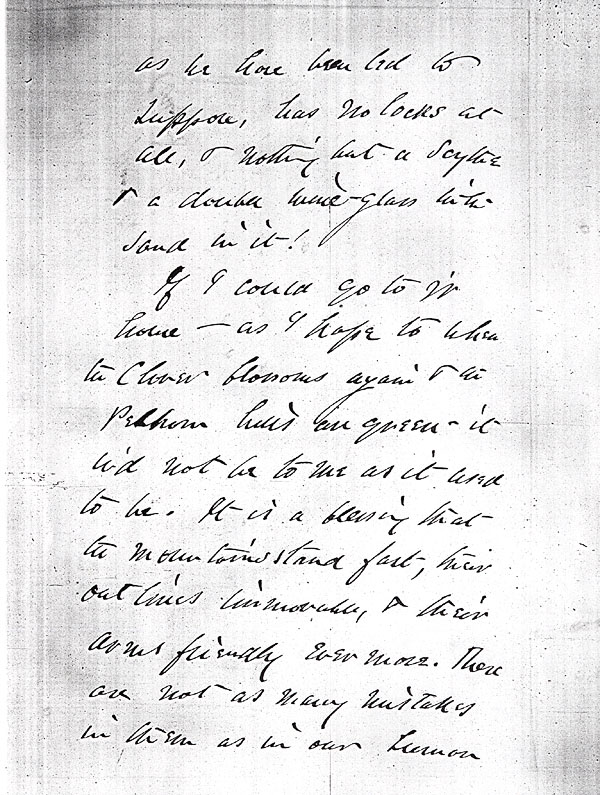 as we have been led to
suppose, has no locks at
all, & nothing but a scythe
& a double wine-glass with
sand in it!
If I could go to yr
home — as I hope to when
the Clover blossoms again & the
Pelham hills are green - it
w'd not be to me as it used
to be. It is a blessing that
the mountains stand fast, their
outlines immovable, & their
arms friendly evermore. There
are not as many mistakes
in them as in our human